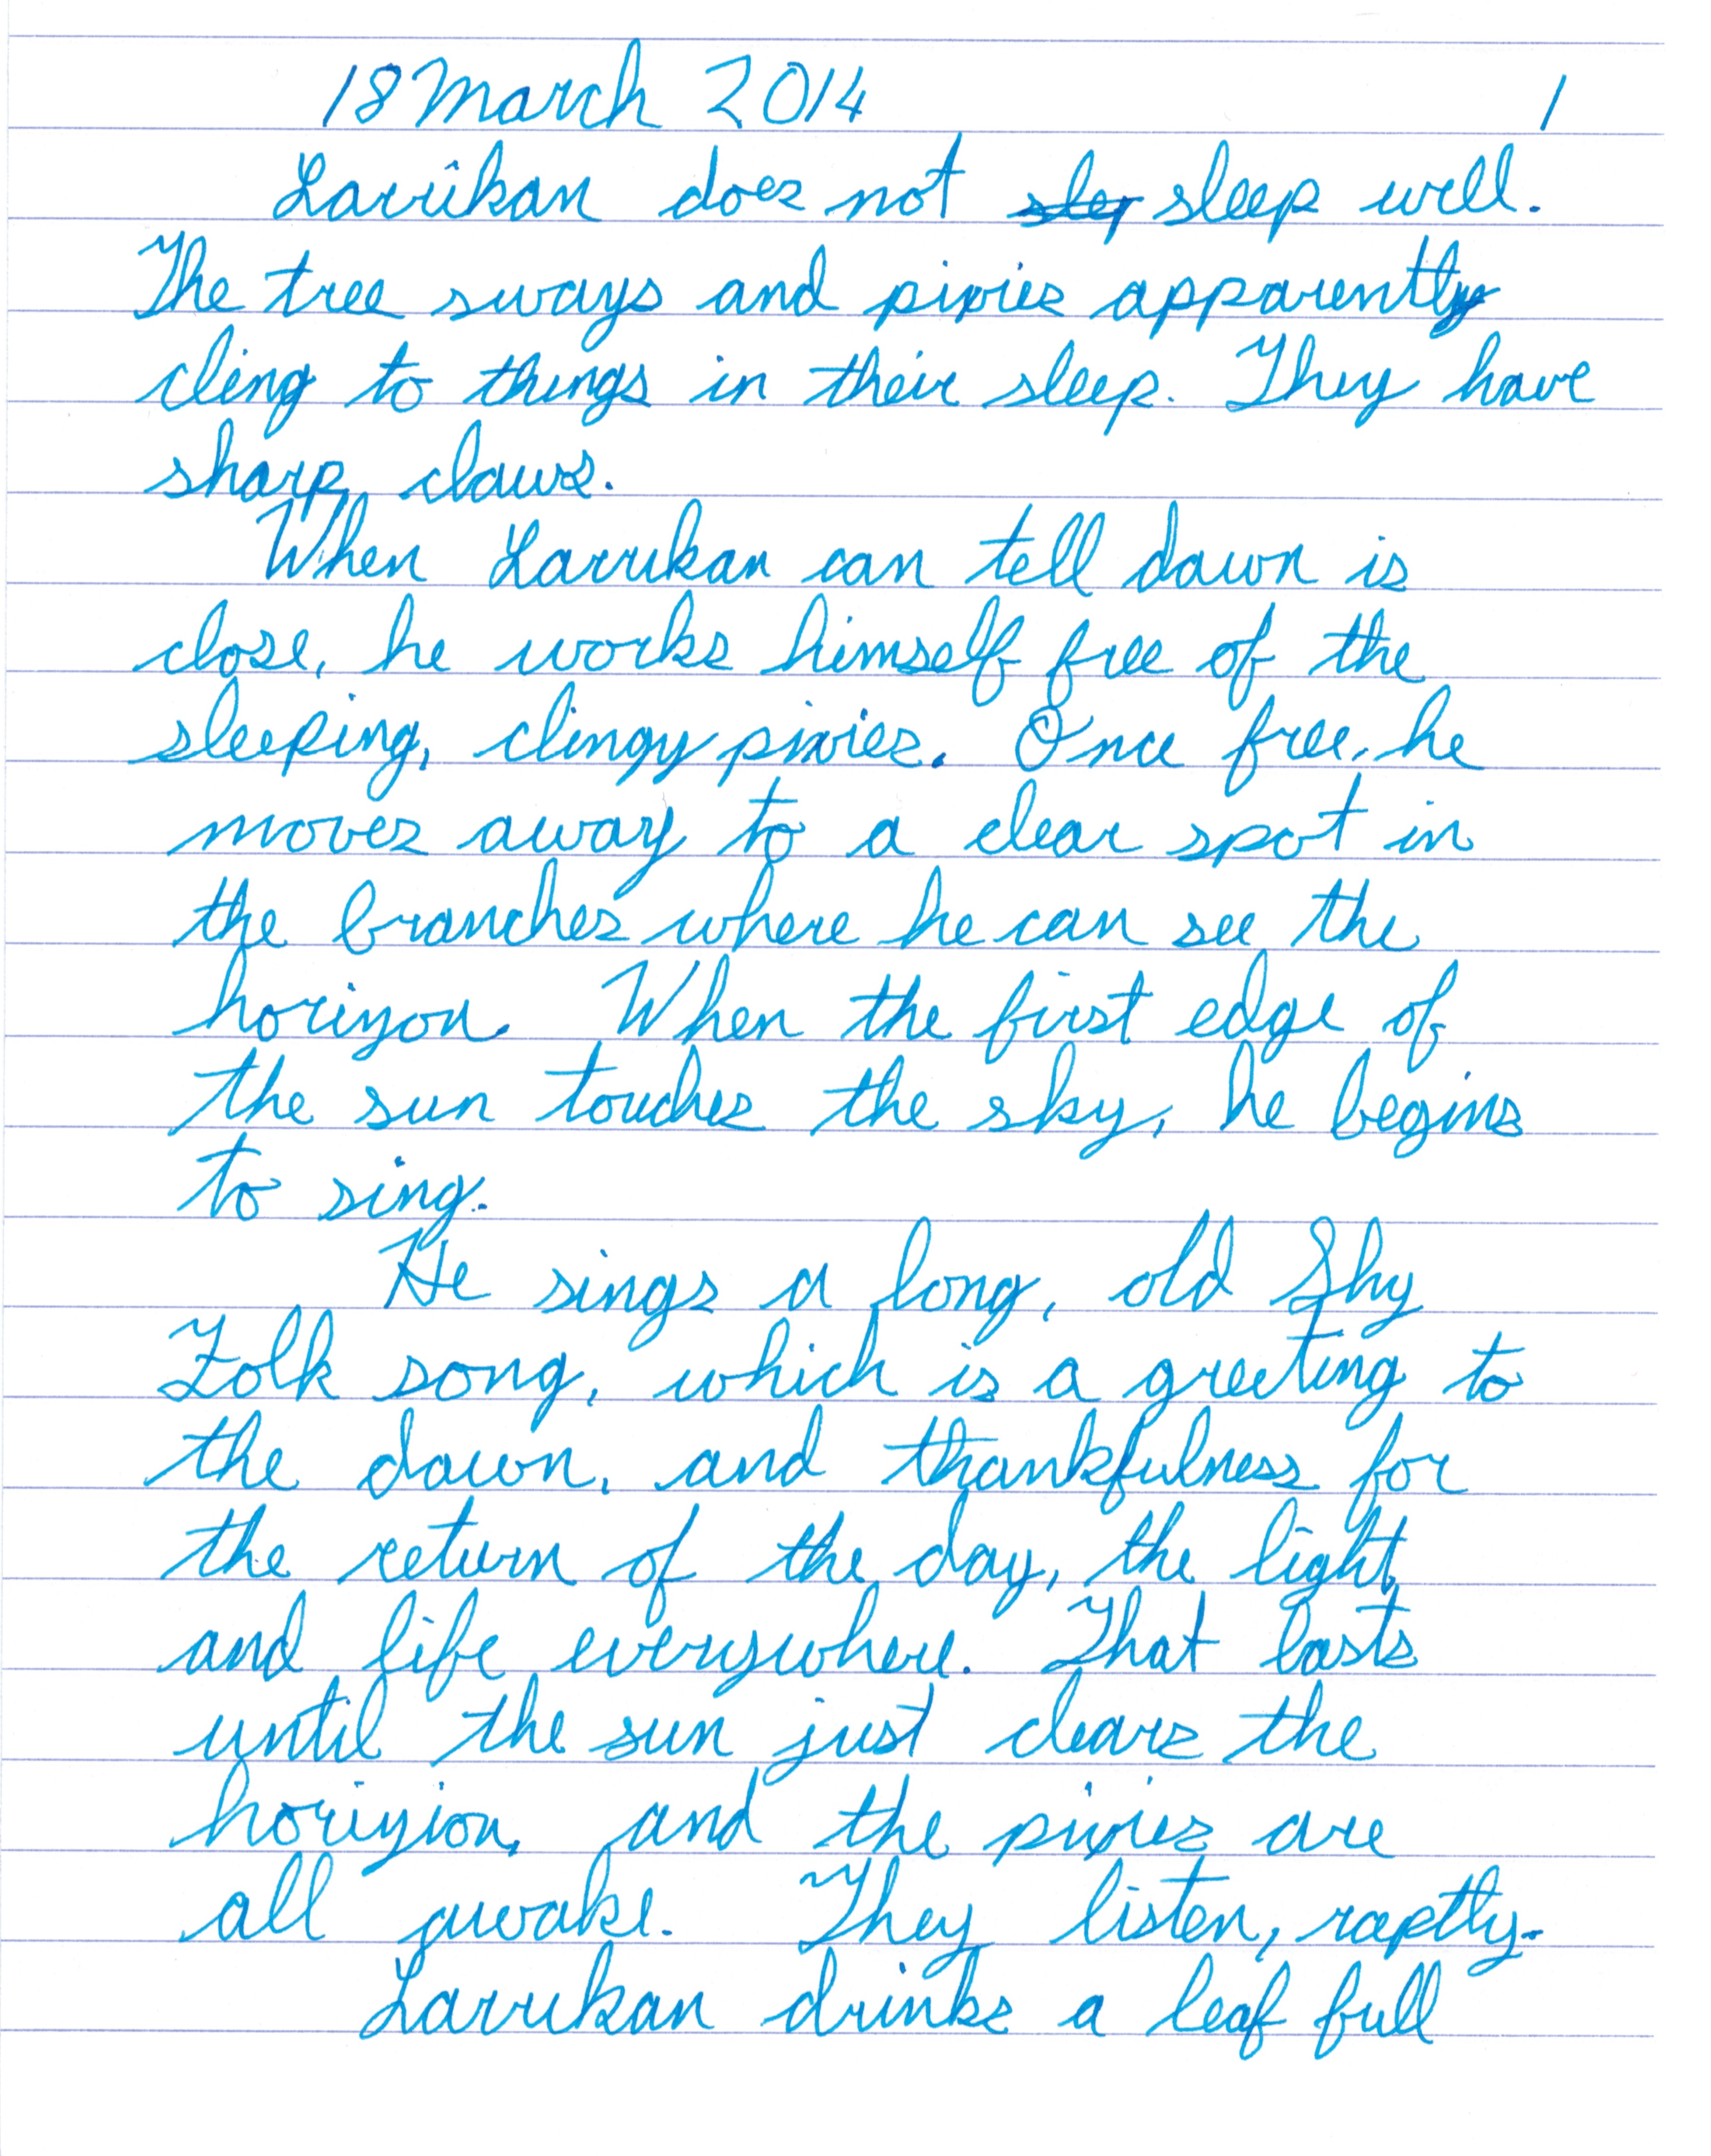 18 March 2014 1
Larrikan does not slep sleep well.
The tree sways and pixies apparently
cling to things in their sleep. They have
sharp claws.
When Larrikan can tell dawn is
close, he works himself free of the
sleeping, clingy pixies. Once free, he
moves away to a clear spot in
the branches where he can see the
horizon. When the first edge of
the sun touches the sky, he begins
to sing.
He sings a long, old Shy
Folk song, which is a greeting to
the dawn, and thankfulness for
the return of the day, the light,
and life everywhere. That lasts
until the sun just clears the
horizion, and the pixies are
all awake. They listen, raptly.
Larrikan drinks a leaf full